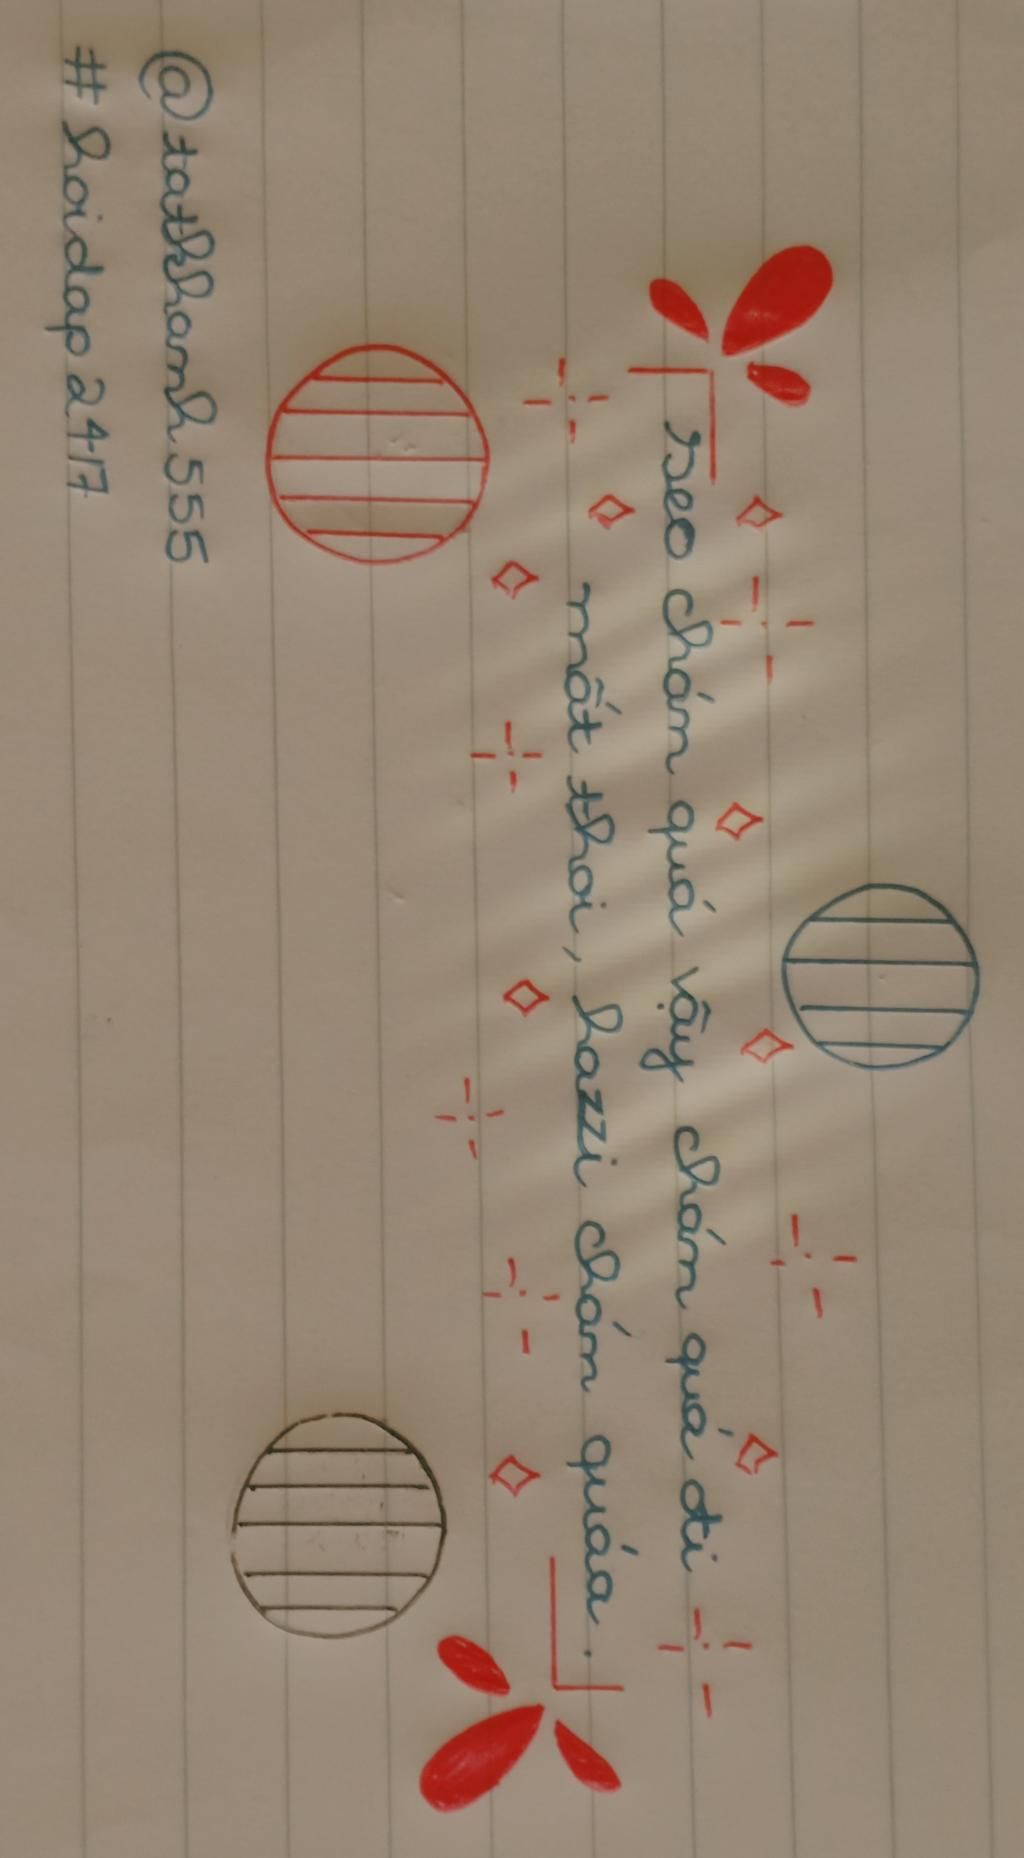 seo chán quá vậy chán quá đi
mất thoi, hazzi chán quáa.
@tatkhanh555
#hoidap247